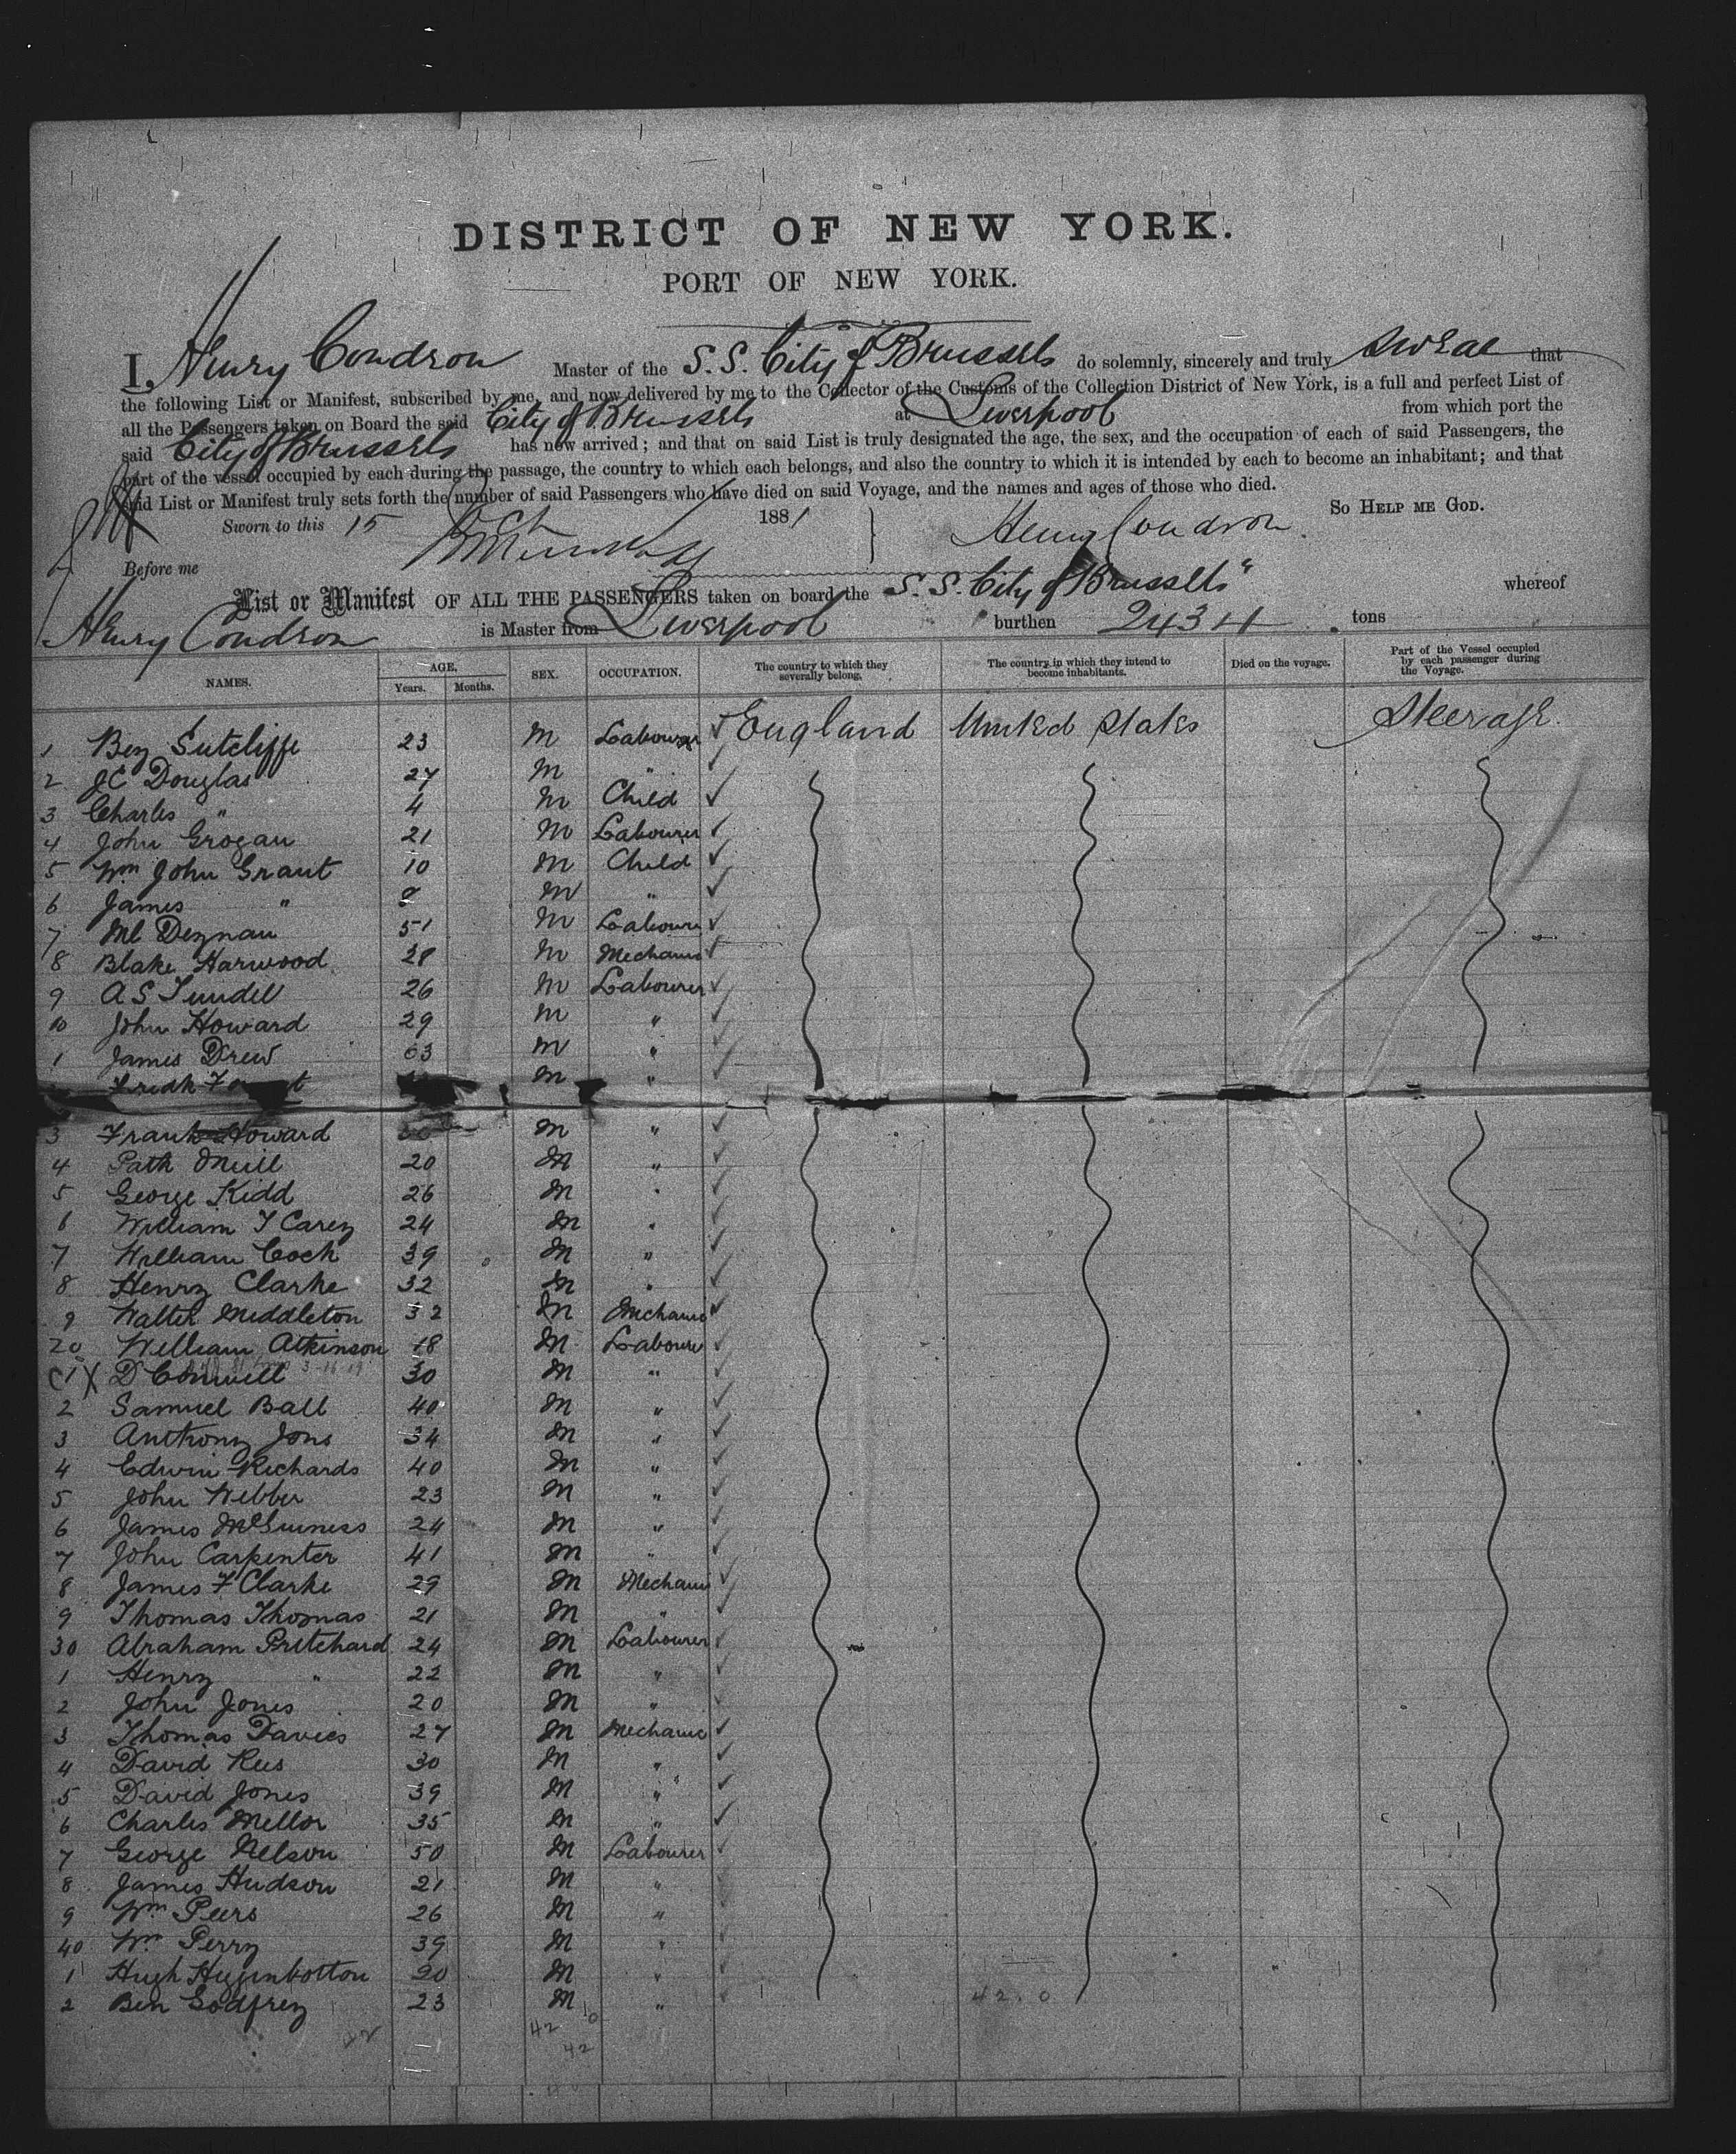 DISTRICT OF NEW YORK.
PORT OF NEW YORK.
I, Henry Condron Master of the S. S. City of Brussels do solemnly, sincerely and truly swear that
the following List or Manifest, subscribed by me, and now delivered by me to the Collector of the Customs of the Collection District of New York, is a full and perfect List of
all the Passengers taken on Board the said City of Brussels at Liverpool from which port the
said City of Brussels has now arrived; and that on said List is truly designated the age, the sex, and the occupation of each of said Passengers, the
part of the vessel occupied by each during the passage, the country to which each belongs, and also the country to which it is intended by each to become an inhabitant; and that
said List or Manifest truly sets forth the number of said Passengers who have died on said Voyage, and the names and ages of those who died.
So HELP ME GOD.
Sworn to this 15 Oct 1881 Henry Condron
Before me
List or Manifest OF ALL THE PASSENGERS taken on board the S. S. City of Brussels" whereof
Henry Condron is Master from Liverpool burthen 2434 tons
NAMES. AGE. Years. Months. SEX. OCCUPATION. The country to which they severally belong. The country in which they intend to become inhabitants. Died on the voyage. Part of the Vessel occupied by each passenger during the Voyage.
1 Benj Sutcliffe 23 M Labourer England United States Steerage
2 J C Douglas 27 M "
3 Charles " 4 M Child
4 John Grogan 21 M Labourer
5 Wm John Grant 10 M Child
6 James " 8 M "
7 Ml Deznan 51 M Labourer
8 Blake Harwood 28 M Mechanic
9 A S Tundell 26 M Labourer
10 John Howard 29 M "
1 James Drew 63 M "
M "
3 Frank Howard M "
4 Patk ONeill 20 M "
5 George Kidd 26 M "
6 William T Carey 24 M "
7 William Cock 39 M "
8 Henry Clarke 32 M "
9 Walter Middleton 32 M Mechanic
20 William Atkinson 18 M Labourer
1 D Connell 30 M "
2 Samuel Ball 40 M "
3 Anthony Jons 34 M "
4 Edwin Richards 40 M "
5 John Webber 23 M "
6 James McGuiness 24 M "
7 John Carpenter 41 M "
8 James F Clarke 29 M Mechanic
9 Thomas Thomas 21 M "
30 Abraham Pritchard 24 M Labourer
1 Henry " 22 M "
2 John Jones 20 M "
3 Thomas Davies 27 M Mechanic
4 David Rees 30 M "
5 David Jones 39 M "
6 Charles Mellor 35 M "
7 George Nelson 50 M Labourer
8 James Hudson 21 M "
9 Wm Peers 26 M "
40 Wm Perry 39 M "
1 Hugh Higinbotton 20 M "
2 Ben Godfrey 23 M "
42 0
42 0
42
42